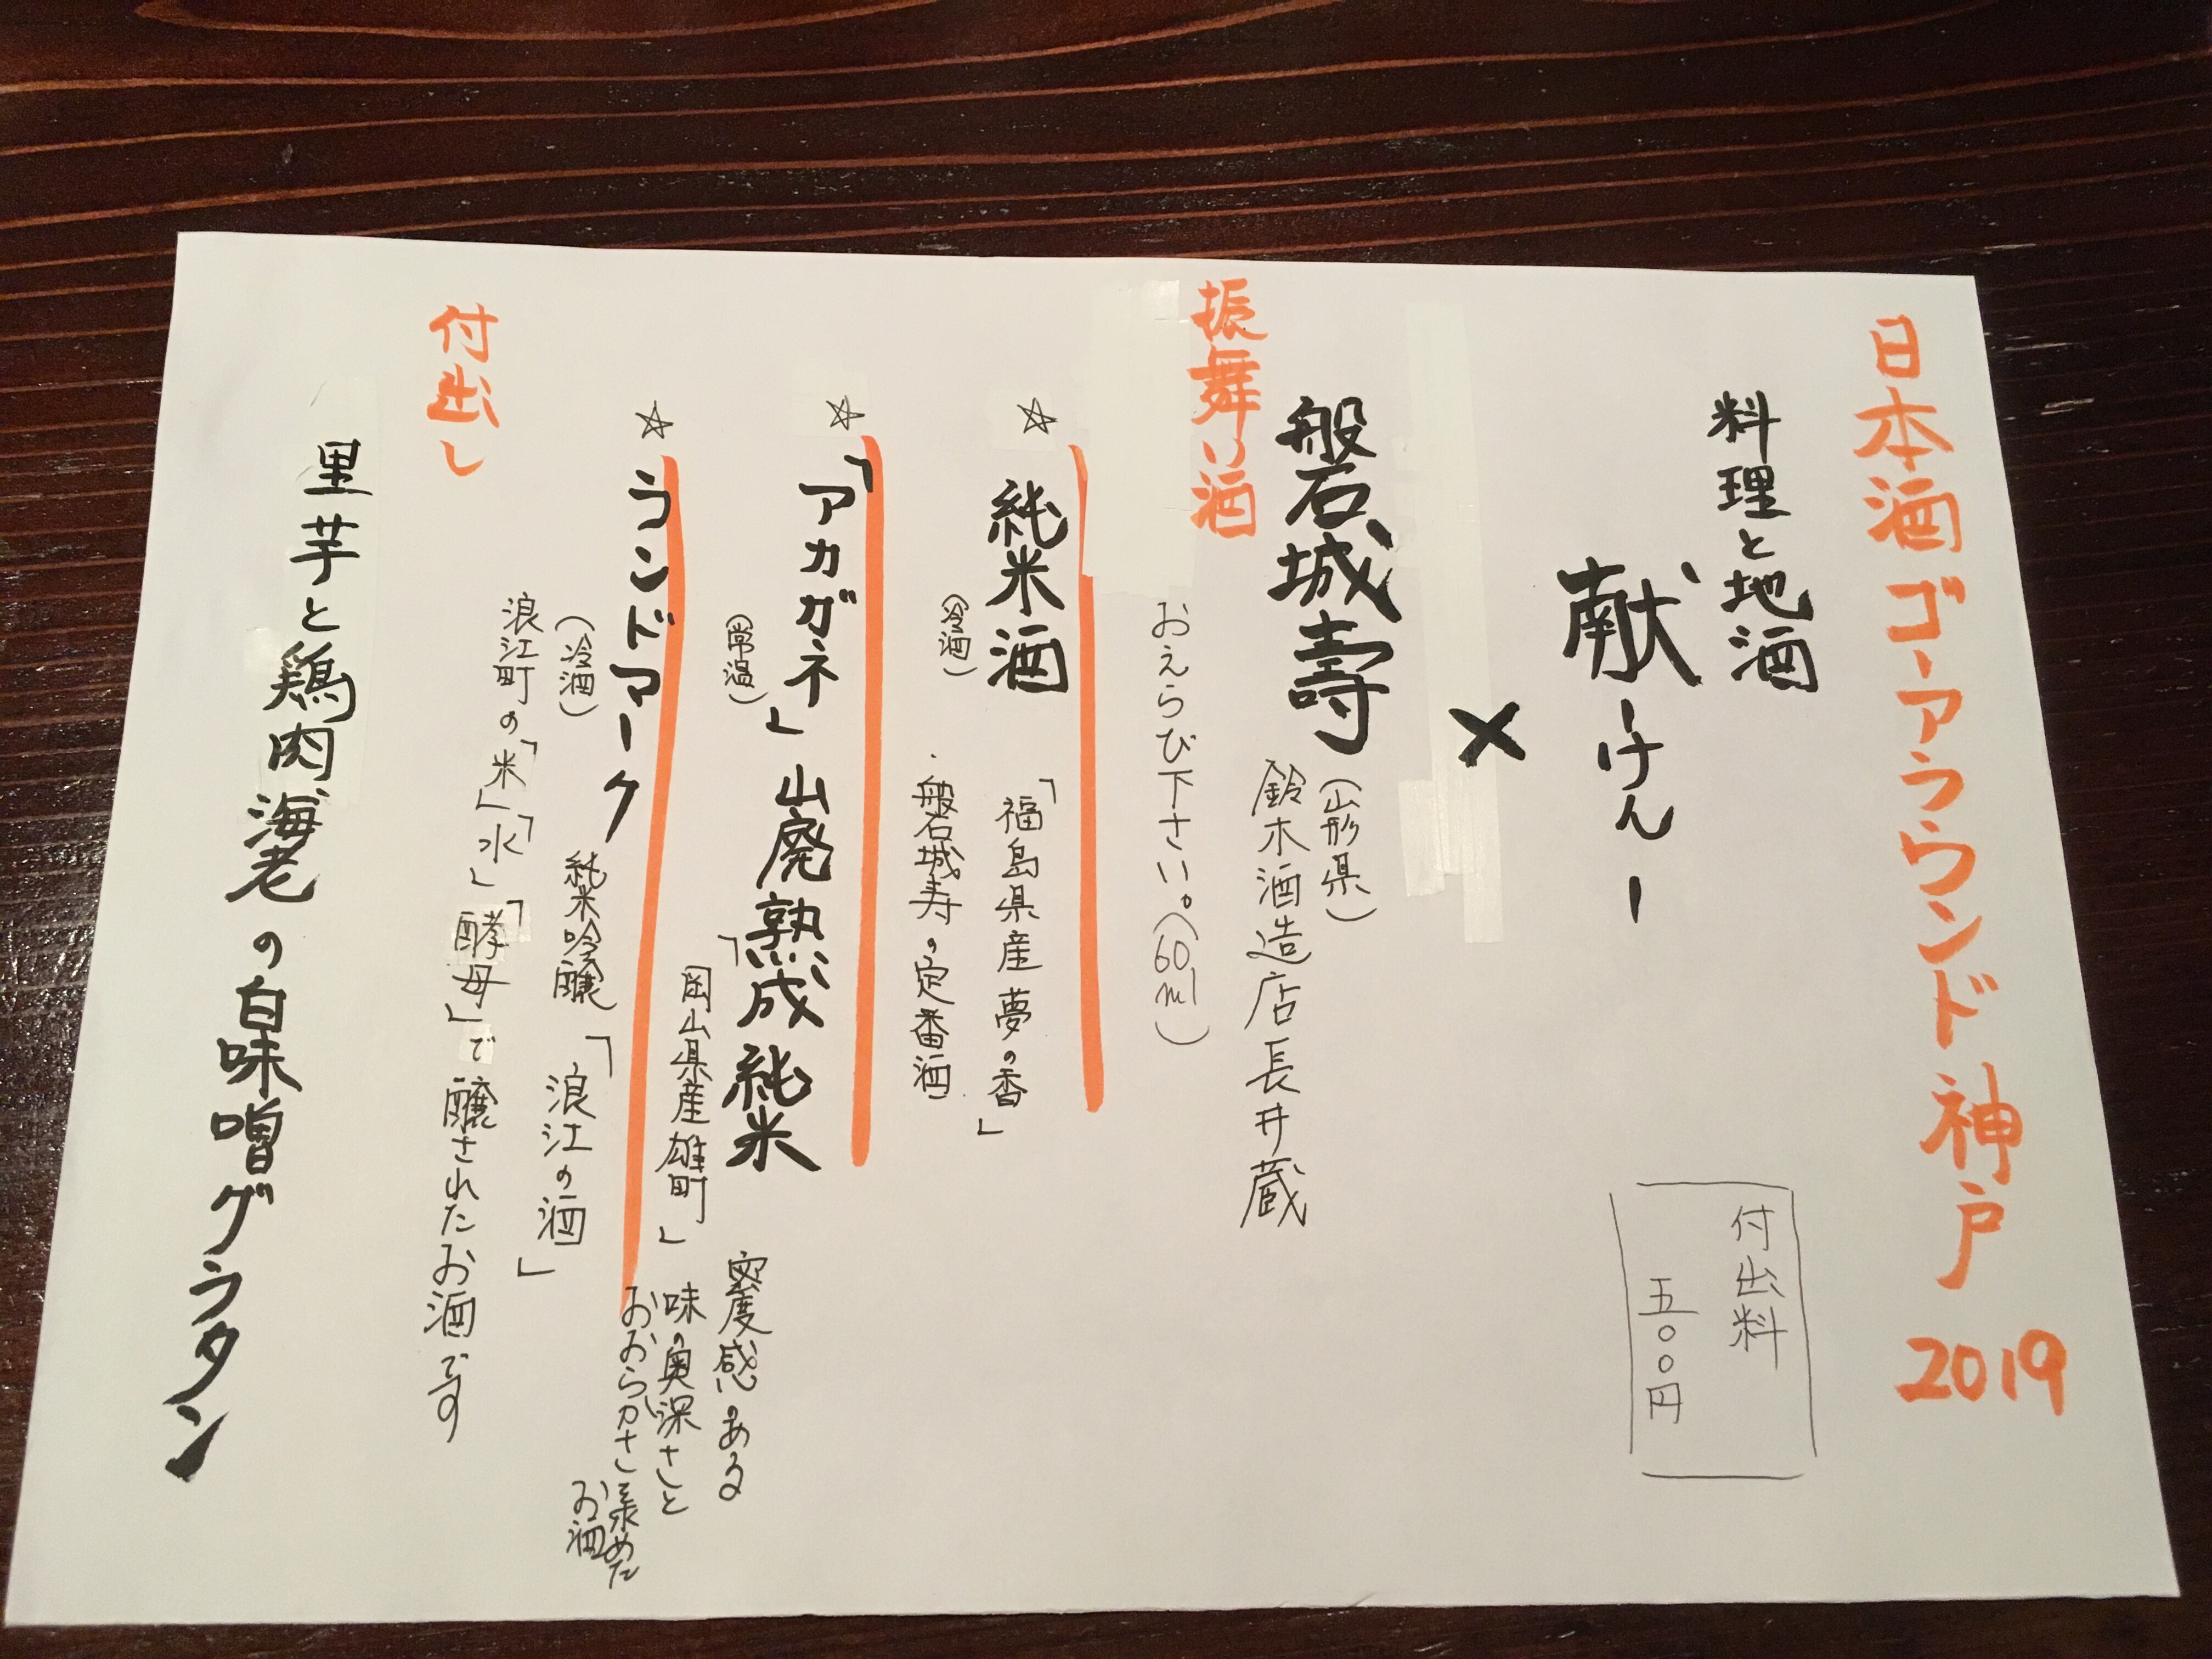 日本酒ゴーアラウンド神戸 2019
料理と地酒
献ーけんー
付出料
五〇〇円
×
磐城壽
(山形県)
鈴木酒造店長井蔵
振舞い酒
おえらび下さい。(60ml)
☆純米酒
(冷酒)
「福島県産夢の香」
・磐城寿の定番酒
☆「アカガネ」山廃熟成純米
(常温)
「岡山県産雄町」
密度感のある
味の奥深さと
おおらかさ秘めた
お酒
☆ランドマーク
(冷酒)
純米吟醸「浪江の酒」
浪江町の「米」「水」「酵母」で醸されたお酒です
付出し
里芋と鶏肉海老の白味噌グラタン